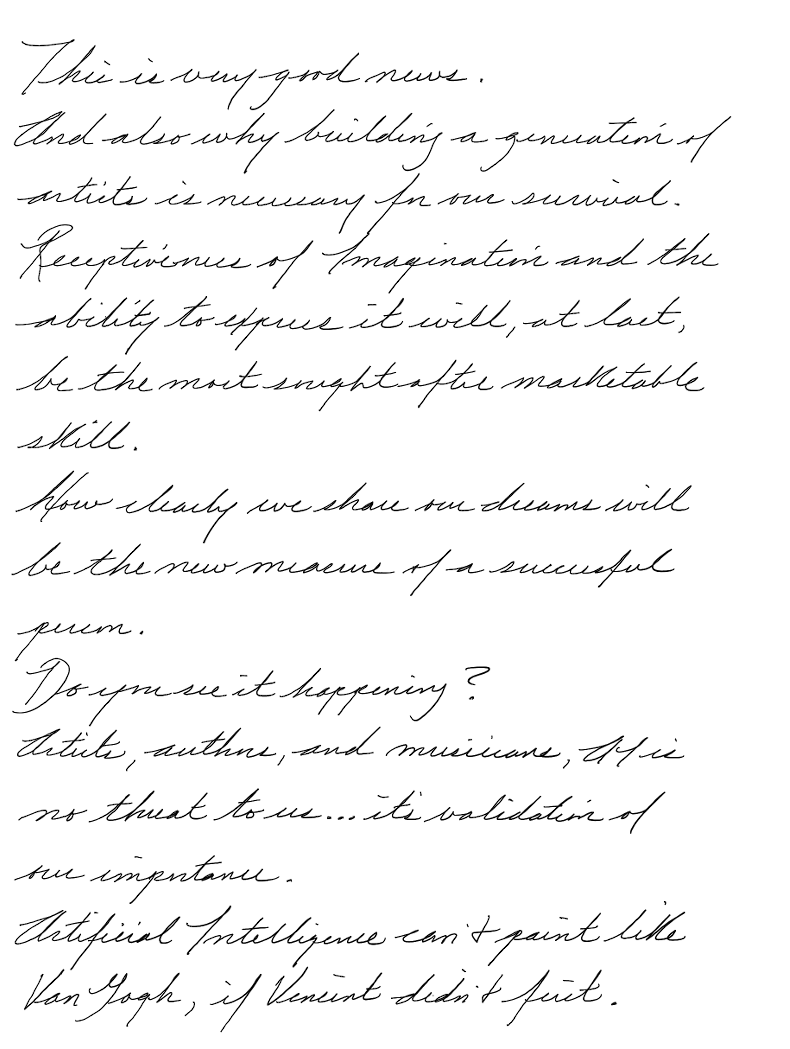 This is very good news.
And also why building a generation of
artists is necessary for our survival.
Receptiveness of Imagination and the
ability to express it will, at last,
be the most sought after marketable
skill.
How clearly we share our dreams will
be the new measure of a successful
person.
Do you see it happening?
Artists, authors, and musicians, AI is
no threat to us... it's validation of
our importance.
Artificial Intelligence can't paint like
Van Gogh, if Vincent didn't first.